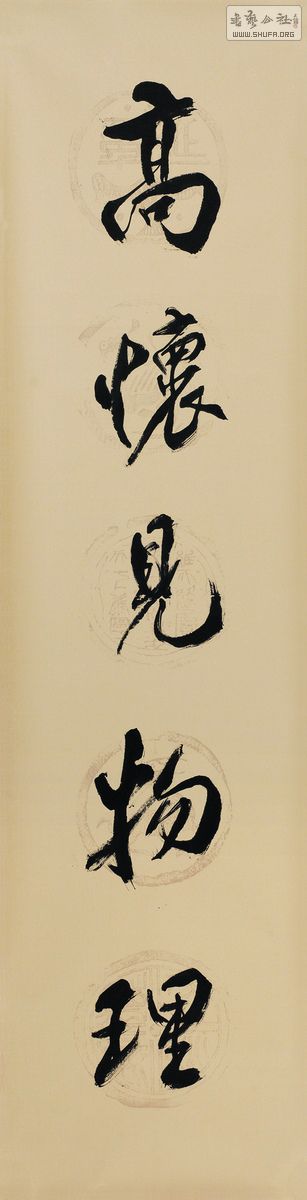 書艺公社
WWW.SHUFA.ORG
高懷見物理